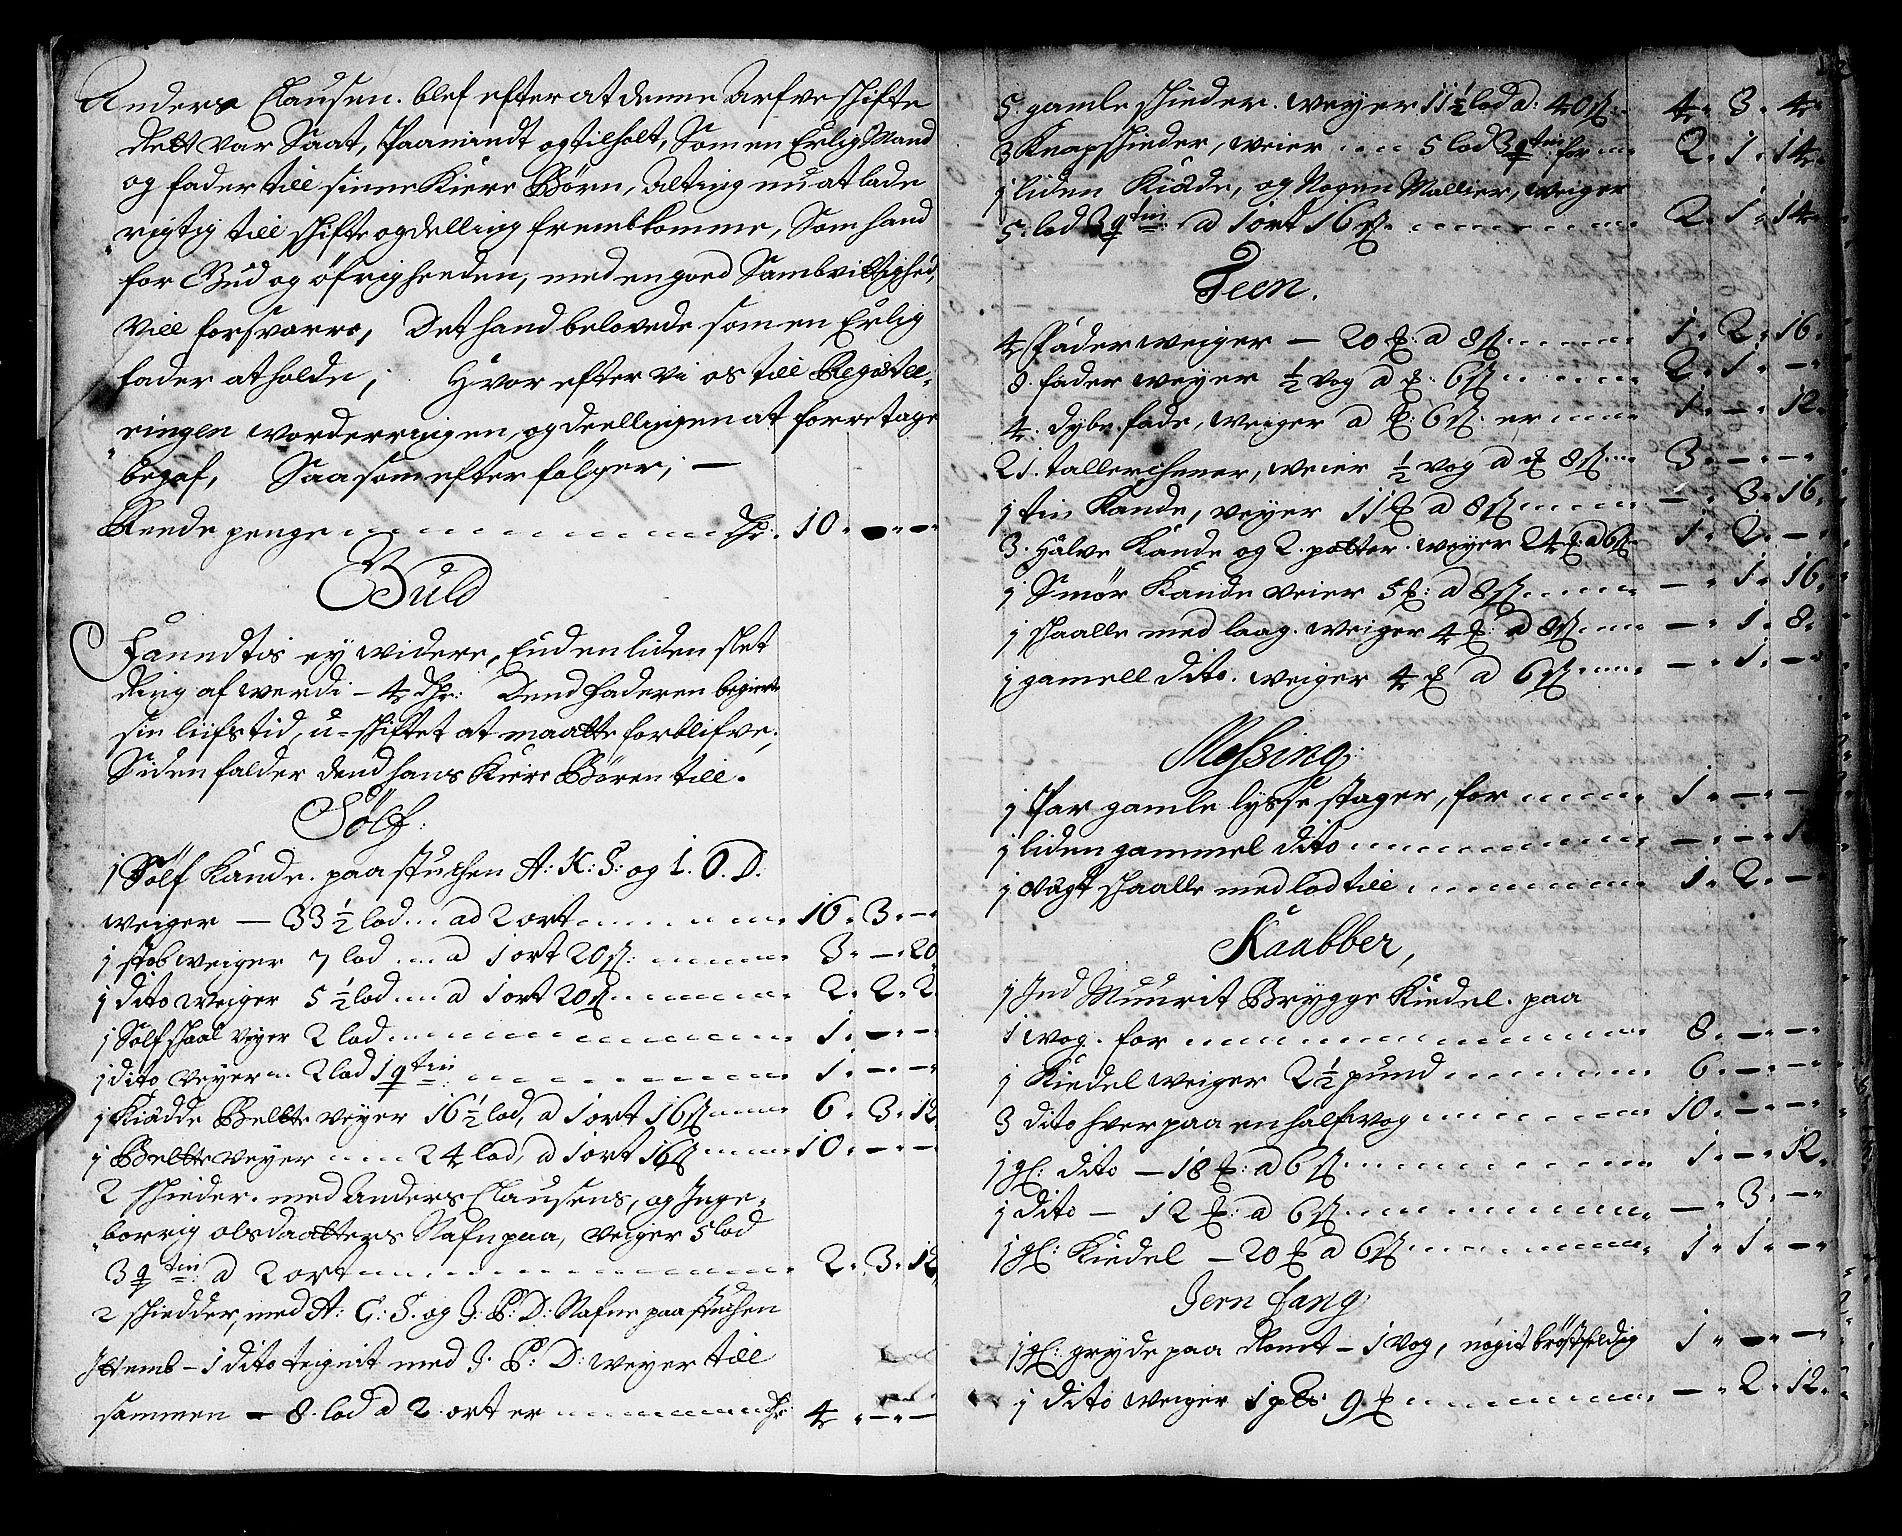 Anders Clausen. blef efter at denne Arfve skifte
Rett var Saat, Paamindt og tilholt, Som en Erlig Mand
og fader till sinne Kiere Børn, Alting nu at lade
rigtig till skifte og delling frembkomme, Som hand
for Gud og öfrigheeden, med en goed Sambvittighed,
vill forsvarre, Det hand belovede som en Erlig
fader at holde; Hvor efter vi os till Registe-
ringen worderringen, og deellingen at forretage
begaf, Saasom efterfölger; —
Reede penge dlr: 10 " — " —
Guld
Fanndtis ey widere, End en liden slet
Ring af werdi – 4 dlr: Dend Faderen begierte
sin liifs tid, u-skiftet at maatte forblifve;
Siden falder dend hans Kiere Børen till.
Sölf:
1 Sölf Kande. paa stuchen A: K: S: og I. O. D.
weiger — 33 ½ lod ad 2 ort 16 " 3 " —
1 stob weiger 7 lod a 1 ort 20 s: 3 " — " 20
1 dito weiger 5 ½ lod a 1 ort 20 s 2 " 2 " 2
1 Sölf skaal veyer 2 lod 1 " — " —
1 dito veyer 2 lod 1 qtin 1 " — " —
1 Kiädde Bellte veyer 16 ½ lod, a 1 ort 16 s 6 " 3 " 12
1 Bellte veyer 24 lod, a 1 ort 16 s 10 " — " —
2 skieder. med Anders Clausens, og Inge-
borrig olsdaatters Nafn paa, veiger 5 lod
3 qtin: a 2 ort 2 " 3 " 12
2 skiedder, med A: C: S. og J: P: D: Nafne paa stuchen
Ittemb – 1 dito teignit med J. P: D: weyer till
sammen — 8. lod a 2. ort er dlr 4 " — " —
5. gamle skieder. weyer 11 ½ lod a: 40 s: 4 " 3 " 4
3 Knapskieder, weier 5 lod 3 qtin for 2 " 1 " 14
1 liden Kiäde, og Nogen Mallier, weiger
5. lod 3 qtin a 1 ort 16 s. 2 " 1 " 14
Teen.
4 Fader weiger — 20 ℔: a 8 s 1 " 2 " 16
8. fader weyer ½ vog a ℔: 6 s 2 " 1 " —
4. dybe fade, weiger a ℔: 6 s. er 1 " — " 12
21. tallerchener, weier ½ vog a ℔ 8 s 3 " — " —
1 tin Kande, veyer 11 ℔ a 8 s — " 3 " 16
3. Halve Kande og 2. potter. weyer 24 ℔: a 6 s 1 " 2 " —
1 Smör Kande veier 5 ℔: a 8 s — " 1 " 16
1 skaalle med laag. weiger 4 ℔: a 8 s — " 1 " 8
1 gamell dito. weiger 4 ℔ a 6 s — " 1 " —
Messing:
1 Par gamle lysse stager, for 1 " — " —
1 liden gammel dito — " — "
1 vägt skaalle med lod till 1 " 2 " —
Kaabber,
1 Ind Muurit Brygge Kiedel. paa
1 vog. for 8 " — " —
1 Kiedel weiger 2 ½ pund 6 " — " —
3 dito hver paa en half vog 10 " — " —
1 gl: dito — 18 ℔: a 6 s 1 " — " 12
1 dito — 12 ℔: a 6 s — " 3 " —
1 gl: Kiedel — 20 ℔ a 6 s 1 " 1 " —
Jern fang:
1 gl: gryde paa Romt – 1 vog, nögit bröstfeldig 1 " — " —
1 dito weiger 1 9 ℔ — " 2 " 12